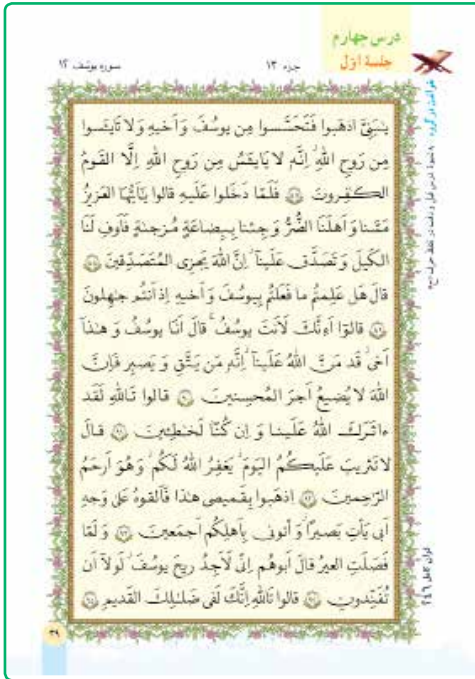 درس چهارم
جلسهٔ اوّل
جزء ۱۳
سوره یوسف ۱۲
یٰبَنِیَّ اذهَبوا فَتَحَسَّسوا مِن یوسُفَ وَ اَخیهِ وَ لا تَایئَسوا
مِن رَوحِ اللهِ اِنَّهو لا یَایئَسُ مِن رَوحِ اللهِ اِلَّا القَومُ
الکٰفِرونَ ۸۷ فَلَمّا دَخَلوا عَلَیهِ قالوا یٰاَیُّهَا العَزیزُ
مَسَّنا وَ اَهلَنَا الضُّرُّ وَ جِئنا بِبِضاعَةٍ مُزجىٰةٍ فَاَوفِ لَنَا
الکَیلَ وَ تَصَدَّق عَلَینا اِنَّ اللهَ یَجزِی المُتَصَدِّقینَ ۸۸
قالَ هَل عَلِمتُم ما فَعَلتُم بِیوسُفَ وَ اَخیهِ اِذ اَنتُم جٰهِلونَ
۸۹ قالوا اَءِنَّکَ لَاَنتَ یوسُفُ قالَ اَنَا یوسُفُ وَ هٰذا
اَخی قَد مَنَّ اللهُ عَلَینا اِنَّهو مَن یَتَّقِ وَ یَصبِر فَاِنَّ
اللهَ لا یُضیعُ اَجرَ المُحسِنینَ ۹۰ قالوا تَاللهِ لَقَد
ءاثَرَکَ اللهُ عَلَینا وَ اِن کُنّا لَخٰطِـینَ ۹۱ قالَ
لا تَثریبَ عَلَیکُمُ الیَومَ یَغفِرُ اللهُ لَکُم وَ هُوَ اَرحَمُ
الرّٰحِمینَ ۹۲ اِذهَبوا بِقَمیصی هٰذا فَاَلقوهُ عَلىٰ وَجهِ
اَبی یَأتِ بَصیرًا وَ أتونی بِاَهلِکُم اَجمَعینَ ۹۳ وَ لَمّا
فَصَلَتِ العیرُ قالَ اَبوهُم اِنّی لَاَجِدُ ریحَ یوسُفَ لَولا اَن
تُفَنِّدونِ ۹۴ قالوا تَاللهِ اِنَّکَ لَفی ضَلٰلِکَ القَدیمِ ۹۵
قرآن کامل ۲۴۶
۳۹